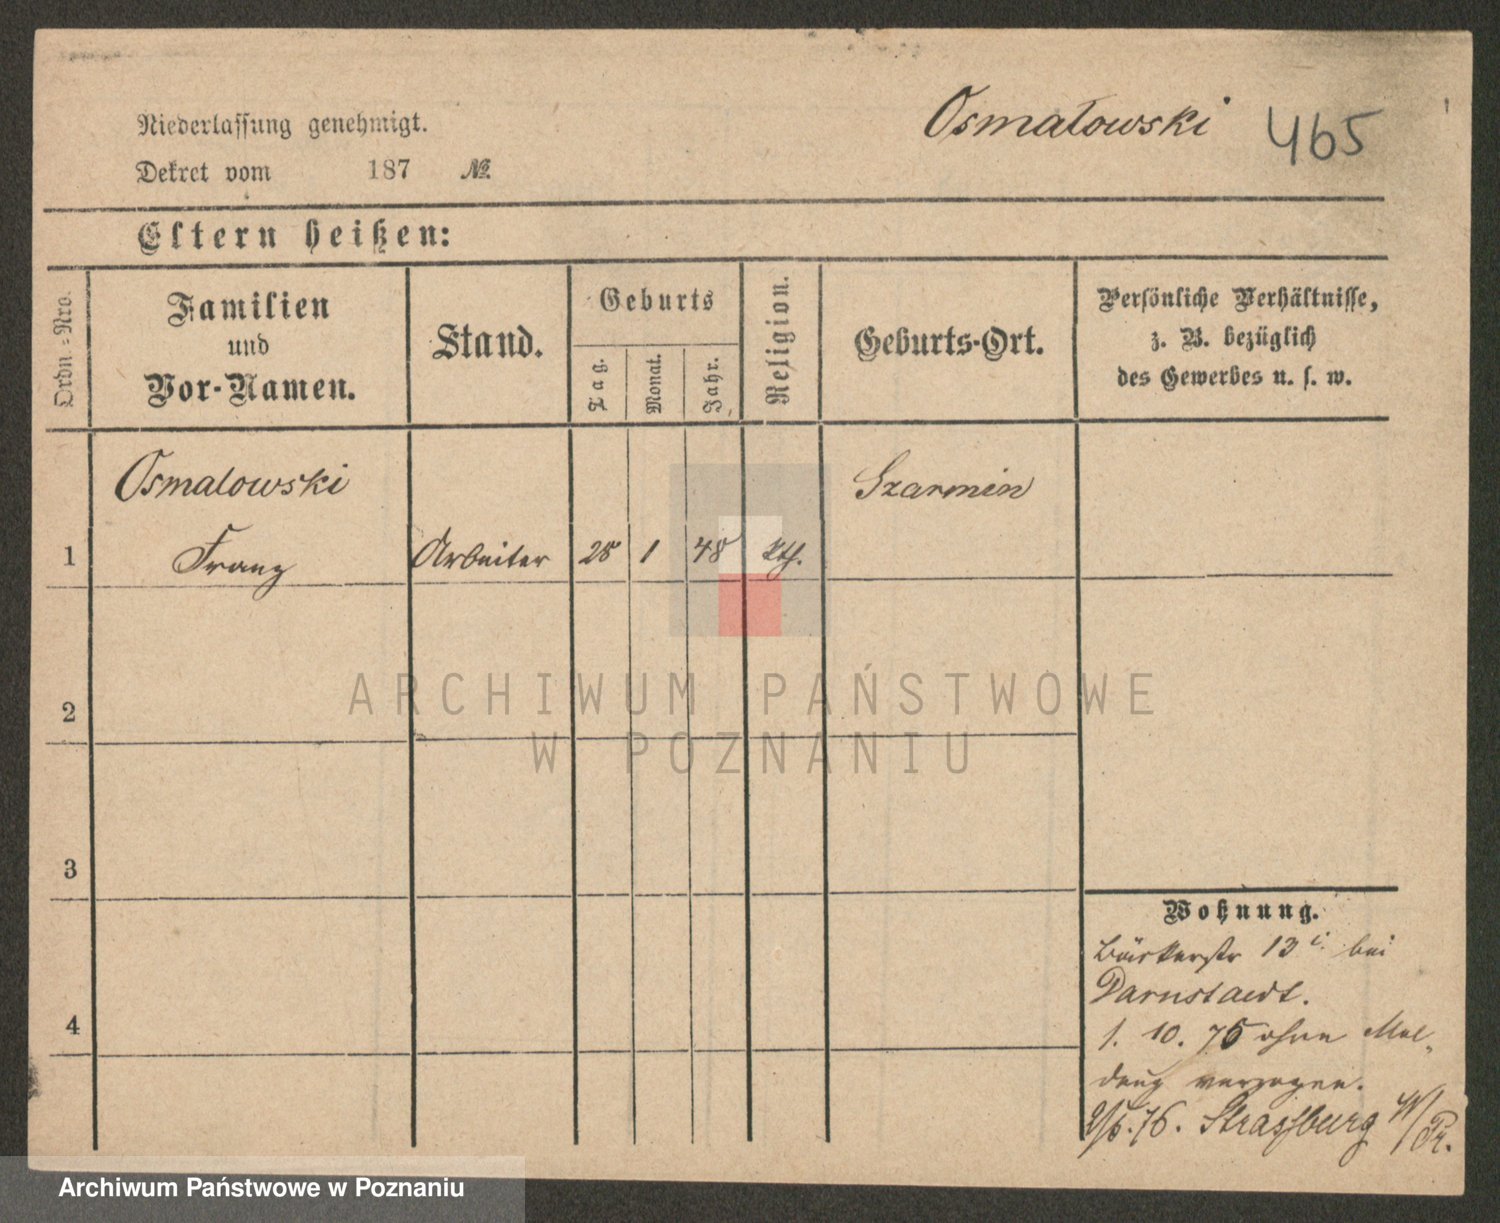 Osmałowski 465
Niederlassung genehmigt.
Dekret vom 187 №
Eltern heißen:
Ordn.-Nro.
Familien
und
Vor-Namen.
Stand.
Geburts
Tag.
Monat.
Jahr.
Religion.
Geburts-Ort.
Persönliche Verhältnisse,
z. B. bezüglich
des Gewerbes u. s. w.
Osmalowski
Szarmin
1 Franz Arbeiter 25 1 48 kth.
2
3
4
Wohnung.
Bäckerstr 13 bei
Darnstaedt.
1. 10. 75 ohne Mel-
dung verzogen.
76. Strassburg W/Pr.
ARCHIWUM PAŃSTWOWE
W POZNANIU
Archiwum Państwowe w Poznaniu